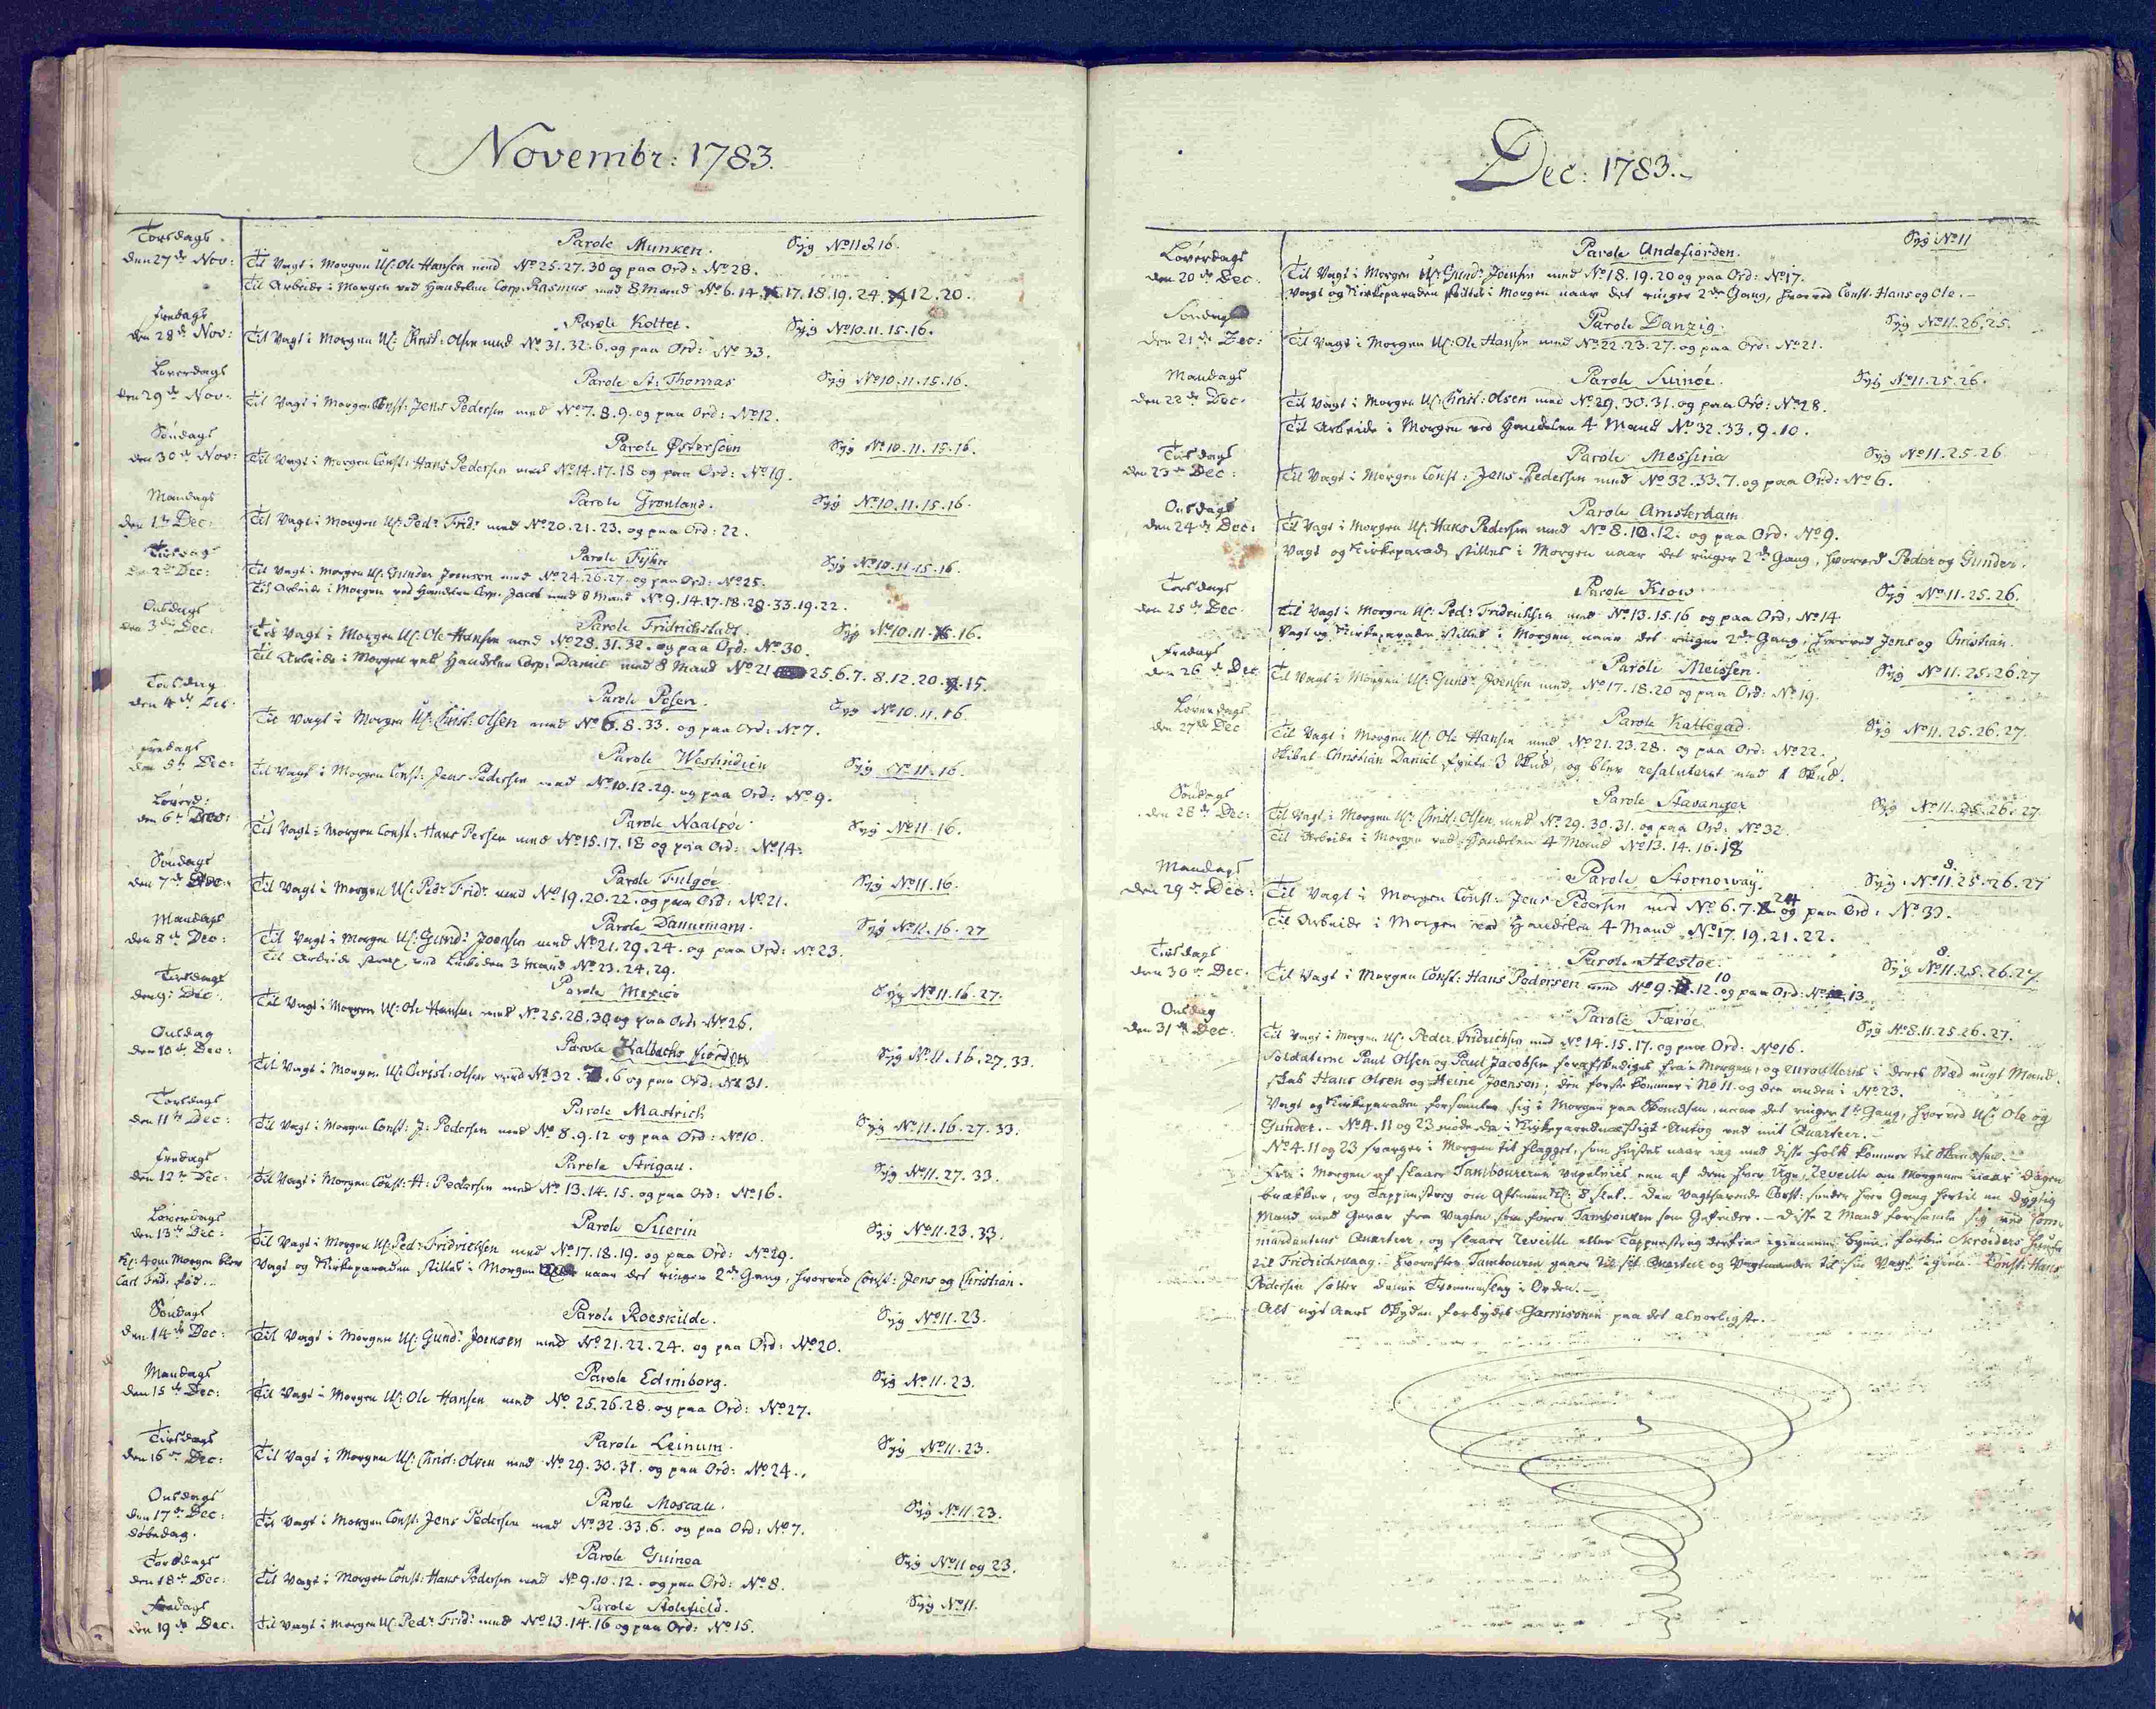 Novembr: 1783.
Torsdags
den 27de Nov:
Parole Munken.
Syg No 11 & 16.
Til Vagt i Morgen Uf: Ole Hansen med No 25. 27. 30 og paa Ord: No 28.
Til Arbeide i Morgen ved Handelen Corp. Rasmus med 8 Mand No 6. 14. 17. 18. 19. 24. 12. 20.
Fredags
den 28de Nov:
Parole Kolter.
Syg No 10. 11. 15. 16.
Til Vagt i Morgen Uf: Christ: Olsen med No 31. 32. 6. og paa Ord: No 33.
Løverdags
den 29de Nov.
Parole St: Thomas
Syg No 10. 11. 15. 16.
Til Vagt i Morgen Const: Jens Pedersen med No 7. 8. 9. og paa Ord: No 12.
Søndags
den 30de Nov:
Parole Østersöen
Syg No 10. 11. 15. 16.
Til Vagt i Morgen Const: Hans Pedersen med No 14. 17. 18 og paa Ord: No 19.
Mandags
den 1te Dec:
Parole Grønland.
Syg No 10. 11. 15. 16.
Til Vagt i Morgen Uf: Pedr Fridr med No 20. 21. 23. og paa Ord: 22.
Tirsdags
den 2den Dec:
Parole Fyhn
Syg No 10. 11. 15. 16.
Til Vagt i Morgen Uf: Gunder Joensen med No 24. 26. 27. og paa Ord: No 25.
Til Arbeide i Morgen ved Handelen Corp. Jacob med 8 Mand No 9. 14. 17. 18. 28. 33. 19. 22.
Onsdags
den 3die Dec:
Parole Fridrichstadt.
Syg No 10. 11. 16.
Til Vagt i Morgen Uf: Ole Hansen med No 29. 31. 32. og paa Ord: No 30.
Til Arbeide i Morgen ved Handelen Corp: Daniel med 8 Mand No 21. 25. 6. 7. 8. 12. 20. 15.
Torsdag
den 4de Dec.
Parole Posen.
Syg No 10. 11. 16.
Til Vagt i Morgen Uf: Christ: Olsen med No 6. 8. 33. og paa Ord: No 7.
Fredags
den 5te Dec:
Parole Westindien
Syg No 11. 16.
Til Vagt i Morgen Const: Jens Pedersen med No 10. 12. 29. og paa Ord: No 9.
Løverd:
den 6te Dec:
Parole Naalsøe
Syg No 11. 16.
Til Vagt i Morgen Const: Hans Persen med No 15. 17. 18 og paa Ord: No 14.
Søndags
den 7de Dec.
Parole Fulgøe
Syg No 11. 16.
Til Vagt i Morgen Uf: Pedr Fridr med No 19. 20. 22. og paa Ord: No 21.
Mandags
den 8de Dec:
Parole Dannemam.
Syg No 11. 16. 27
Til Vagt i Morgen Uf: Gundr Joensen med No 21. 29. 24. og paa Ord: No 23.
Til Arbeide strax ved 3 Mand No 23. 24. 29.
Tirsdags
den 9: Dec.
Parole Mexico
Syg No 11. 16. 27.
Til Vagt i Morgen Uf: Ole Hansen med No 25. 28. 30 og paa Ord: No 26.
Onsdag
den 10de Dec:
Parole Kalbachs fiorden
Syg No 11. 16. 27. 33.
Til Vagt i Morgen Uf: Christ: Olsen med No 32. 7. 6 og paa Ord: No 31.
Torsdags
den 11te Dec:
Parole Mastrich
Syg No 11. 16. 27. 33.
Til Vagt i Morgen Const: J: Pedersen med No 8. 9. 12 og paa Ord: No 10.
Fredags
den 12te Dec:
Parole Strigau.
Syg No 11. 27. 33.
Til Vagt i Morgen Const: H: Pedersen med No 13. 14. 15. og paa Ord: No 16.
Løverdags
den 13de Dec:
Parole Suerin
Syg No 11. 23. 33.
Til Vagt i Morgen Uf: Pedr Fridrichsen med No 17. 18. 19. og paa Ord: No 29.
Kl: 4 om Morgen blev
Carl Frid: fød.
Vagt og Kirkeparaden stilles i Morgen naar det ringer 2den Gang, hvorved Const: Jens og Christian.
Søndags
den 14de Dec:
Parole Roeskilde.
Syg No 11. 23.
Til Vagt i Morgen Uf: Gundr Joensen med No 21. 22. 24. og paa Ord: No 20.
Mandags
den 15de Dec:
Parole Edimborg.
Syg No 11. 23.
Til Vagt i Morgen Uf: Ole Hansen med No 25. 26. 28. og paa Ord: No 27.
Tirsdags
den 16de Dec:
Parole Leinum.
Syg No 11. 23.
Til Vagt i Morgen Uf: Christ: Olsen med No 29. 30. 31. og paa Ord: No 24.
Onsdags
den 17de Dec:
døbedag.
Parole Moscau.
Syg No 11. 23.
Til Vagt i Morgen Const: Jens Pedersen med No 32. 33. 6. og paa Ord: No 7.
Torsdags
den 18de Dec:
Parole Guinea
Syg No 11 og 23.
Til Vagt i Morgen Const: Hans Pedersen med No 9. 10. 12. og paa Ord: No 8.
Fredags
den 19de Dec.
Parole Stolefield.
Syg No 11.
Til Vagt i Morgen Uf: Pedr Frid: med No 13. 14. 16 og paa Ord: No 15.
Dec: 1783.
Løverdags
den 20de Dec
Parole Andefiorden.
Syg No 11
Til Vagt i Morgen Uf: Gundr Joensen med No 18. 19. 20 og paa Ord: No 17.
Vagt og Kirkeparaden stilles i Morgen naar det ringer 2den Gang, hvorved Const. Hans og Ole.
Søndag
den 21de Dec:
Parole Danzig.
Syg No 11. 26. 25.
Til Vagt i Morgen Uf: Ole Hansen med No 22. 23. 27. og paa Ord: No 21.
Mandags
den 22de Dec.
Parole Suinøe.
Syg No 11. 25. 26.
Til Vagt i Morgen Uf: Christ: Olsen med No 29. 30. 31. og paa Ord: No 28.
Til Arbeide i Morgen ved Handelen 4 Mand No 32. 33. 9. 10.
Tirsdags
den 23de Dec:
Parole Messina
Syg No 11. 25. 26
Til Vagt i Morgen Const: Jens Pedersen med No 32. 33. 7. og paa Ord: No 6.
Onsdags
den 24de Dec:
Parole Amsterdam
Til Vagt i Morgen Uf. Hans Pedersen med No 8. 10. 12. og paa Ord. No 9.
Vagt og Kirkeparade stilles i Morgen naar det ringer 2de Gang, hvorved Peder og Gunder.
Torsdags
den 25de Dec:
Parole Kiow
Syg No 11. 25. 26.
Til Vagt i Morgen Uf: Pedr Fridrichsen med No 13. 15. 16 og paa Ord. No 14
Vagt og Kirkeparaden stilles i Morgen naar det ringer 2de Gang, hvorved Jens og Christian.
Fredags
den 26de Dec
Parole Meissen.
Syg No 11. 25. 26. 27
Til Vagt i Morgen Uf: Gundr Joensen med No 17. 18. 20 og paa Ord: No 19.
Løverdags
den 27de Dec
Parole Kattegad.
Syg No 11. 25. 26. 27.
Til Vagt i Morgen Uf: Ole Hansen med No 21. 23. 28. og paa Ord: No 22.
Skibet Christian Daniel skiøte 3 Skud, og blev resaluteret med 1 Skud.
Søndags
den 28de Dec:
Parole Stavanger
Syg No 11. 25. 26. 27
Til Vagt i Morgen Uf: Christ: Olsen med No 29. 30. 31. og paa Ord: No 32.
Til Arbeide i Morgen ved Handelen 4 Mand No 13. 14. 16. 18
Mandags
den 29de Dec:
Parole Stornoway.
8.
Syg. No 11. 25. 26. 27
Til Vagt i Morgen Const: Jens Pedersen med No 6. 7. 24 og paa Ord: No 33.
Til Arbeide i Morgen ved Handelen 4 Mand No 17. 19. 21. 22.
Tirsdags
den 30te Dec.
Parole Hestøe.
8.
Syg No 11. 25. 26. 27.
Til Vagt i Morgen Const: Hans Pedersen med No 9. 10. 12. og paa Ord: No 13
Onsdag
den 31te Dec.
Parole Færøe.
Syg No 8. 11. 25. 26. 27.
Til Vagt i Morgen Uf. Peder Fridrichsen med No 14. 15. 17. og paa Ord: No 16.
Soldaterne Paul Olsen og Paul Jacobsen forafskediges fra i Morgen, og enroulleres i deres Sted nygt Mand-
skab Hans Olsen og Heine Joensen, den første kommer i No 11. og den anden i No 23.
Vagt og Kirkeparaden forsamler sig i Morgen paa Skandsen, naar det ringer 1te Gang, hvorved Uf: Ole og
Gunder. No 4. 11 og 23 møde da i Kirkeparademæssigt Antog ved mit Quarteer.
No 4. 11 og 23 sværger i Morgen til Flagget, som heises naar jeg med disse Folk kommer til Skandsen.
Fra i Morgen af slaaer Tambourerne vexelviis een af dem hver Uge, Reveille om Morgenen naar Dagen
brækker, og Tappenstreg om Aftenen Kl: 8 slet. Den Vagthavende Const: sender hver Gang hertil en dygtig
Mand med Gevær fra Vagten som fører Tambouren som Gefreider. Disse 2 Mand forsamle sig ved Com-
mandantens Quarteer, og slaaer Reveille eller Tappenstreg derfra igiennem Byen, forbi Skrøiders Huus
til Fridrichvaag. Hvorefter Tambouren gaaer til sit Quarteer og Vagtmanden til sin Vagt igien. Const: Hans
Pedersen sætter denne Trommeslag i Orden.
Alt nyt Aars Skyden forbydes Garnisonen paa det alvorligste.